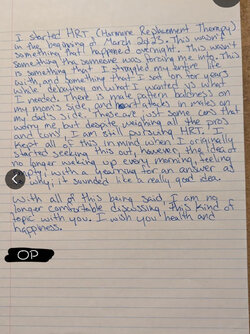 I started HRT (Hormone Replacement Therapy)
in the beginning of March 2025. This wasn't
something that happened overnight. This wasn't
something that someone was forcing me into. This
is something that I struggled my entire life
with, and something that I sat on for years
while debating on what I wanted vs what
I needed. There is male pattern baldness on
my mom's side, and heart attacks in males on
my dad's side. These are just some cons that
worry me but despite weighing all the pros
and cons, I am still pursuing HRT. I
kept all of this in mind when I originally
started seeking this out, however, the idea of
no longer waking up every morning, feeling
empty, with a yearning for an answer as
to why; it sounded like a really good idea.
With all of this being said, I am no
longer comfortable discussing this kind of
topic with you. I wish you health and
happiness.
OP